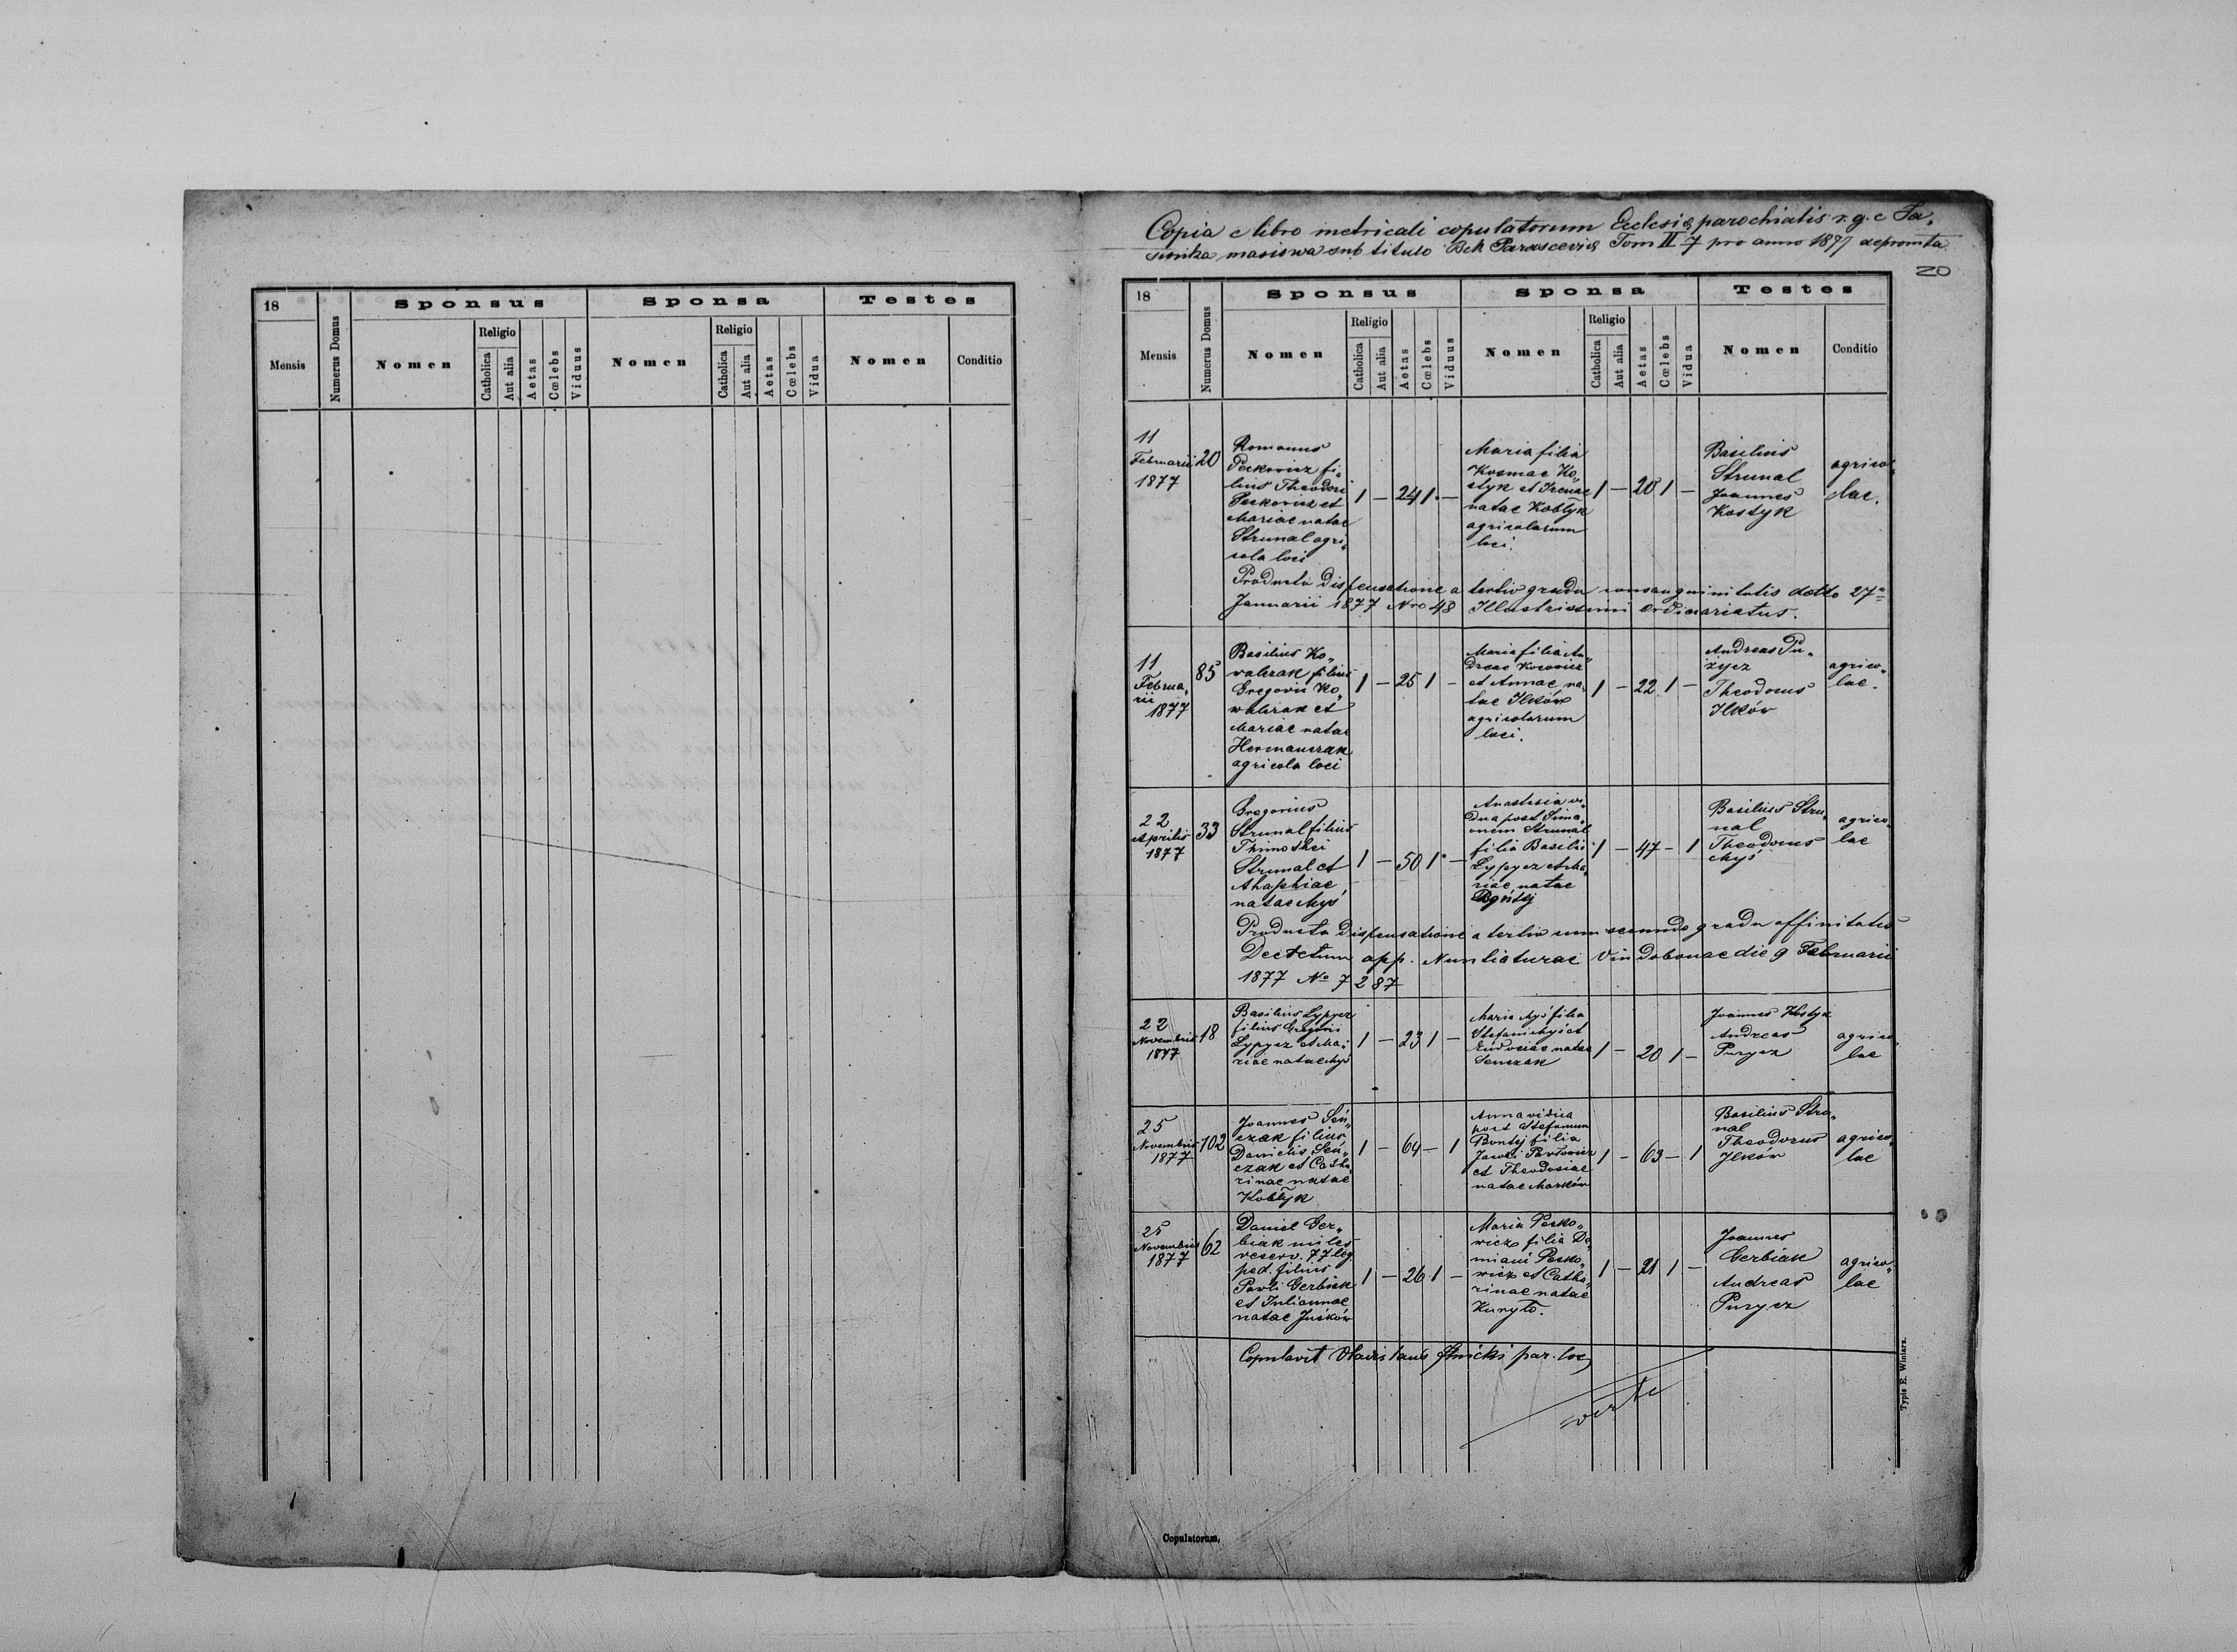 18
Mensis
Numerus Domus
Sponsus
Nomen
Religio
Catholica
Aut alia
Aetas
Cœlebs
Viduus
Sponsa
Nomen
Religio
Catholica
Aut alia
Aetas
Cœlebs
Vidua
Testes
Nomen
Conditio
Copia e libro metricali copulatorum Ecclesiæ parochialis r. g. c Ja„
masiowa sub titulo Parasceviæ Tom II 7 pro anno 1877 depromta
20
18
Mensis
Numerus Domus
Sponsus
Nomen
Religio
Catholica
Aut alia
Aetas
Cœlebs
Viduus
Sponsa
Nomen
Religio
Catholica
Aut alia
Aetas
Cœlebs
Vidua
Testes
Nomen
Conditio
11
Februarii
1877
20
Romanus
Peckowicz fi„
lius Theodori
Peckowicz et
Mariae natae
Strunal agri„
cola loci
1 — 24 1 —
Maria filia
Kosmae Ko„
styk et Irenae
natae Kobłyk
agricolarum
loci.
1 — 20 1 —
Basilius
Strunal
Joannes
Kostyk
agrico„
lae.
Producta dispensatione a tertio gradu consanguinitatis dotto 27ª
Januarii 1877 Nro 48 Illustrissimi Ordinariatus.
11
Februa„
rii
1877
85
Basilius Ko„
walczak filius
Gregorii Ko„
walczak et
Mariae natae
Hermanczak
agricola loci
1 — 25 1 —
Maria filia An„
dreae
et Annae na„
tae Ilków
agricolarum
loci.
1 — 22 1 —
Andreas Pu„
życz
Theodorus
Ilków
agrico„
lae.
22
Aprilis
1877
33
Gregorius
Strunal filius
Thimothei
Strunal et
Ahaphiae
natae Myś
1 — 50 1 —
Anastasia vi„
dua post Simo„
onem Strunal
filia Basilii
Lypycz et Ma„
riae natae
1 — 47 — 1
Basilius Stru„
nal
Theodorus
Myś
agrico„
lae
Producta dispensatione a tertio cum secundo gradu affinitatis
Decretum app. Nuntiaturae Vindobonae die 9 Februarii
1877 No 7287
22
Novembris
1877
18
Basilius Lypycz
filius Gregorii
Lypycz et Ma„
riae natae Myś
1 — 23 1 —
Maria Myś filia
Stefani Myś et
Eudociae natae
Senczak
1 — 20 1 —
Joannes Kostyk
Andreas
Purycz
agrico„
lae
25
Novembris
1877
102
Joannes Sen„
czak filius
Danielis Sen„
czak et Catha„
rinae natae
Kobłyk
1 — 64 — 1
Anna vidua
post Stefanum
Bontij filia
Jacobi Pawłowicz
et Theodosiae
natae Marków
1 — 63 — 1
Basilius Stru„
nal
Theodorus
Ilków
agrico„
lae
25
Novembris
1877
62
Daniel Ger„
biak miles
reserv. 77 leg
ped. filius
Pavli Gerbiak
et Juliannae
natae Juśków
1 — 26 1 —
Maria Pecko„
wicz filia Da„
miani Pecko„
wicz et Catha„
rinae natae
Kuryło.
1 — 21 1 —
Joannes
Gerbiak
Andreas
Purycz
agrico„
lae
Copulavit par. loc
verte
Typis E. Winiarz.
Copulatorum.